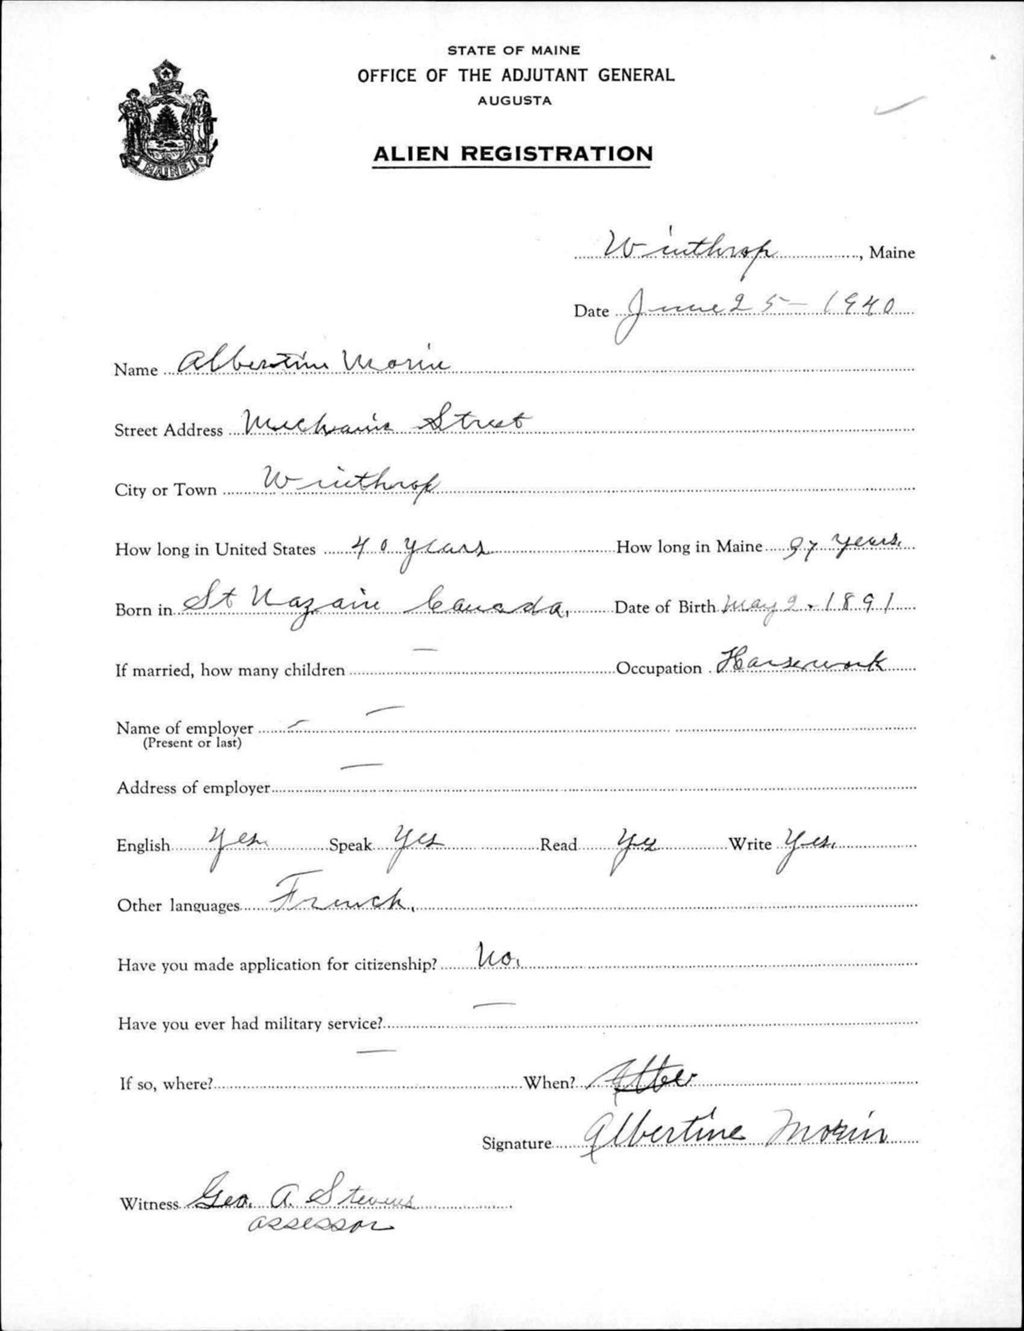 STATE OF MAINE
OFFICE OF THE ADJUTANT GENERAL
AUGUSTA
ALIEN REGISTRATION
MAINE
Winthrop, Maine
Date June 25 - 1940
Name Albertine Morin
Street Address Mechanic Street
City or Town Winthrop
How long in United States 40 years How long in Maine years.
Born in St Nazaire Canada, Date of Birth May 2. 1891
If married, how many children — Occupation Housework
Name of employer — —
(Present or last)
Address of employer —
English Yes. Speak Yes Read Yes Write Yes.
Other languages French.
Have you made application for citizenship? No.
Have you ever had military service? —
If so, where? — When?
Signature Albertine Morin
Witness Geo. A. Stevens
assessor